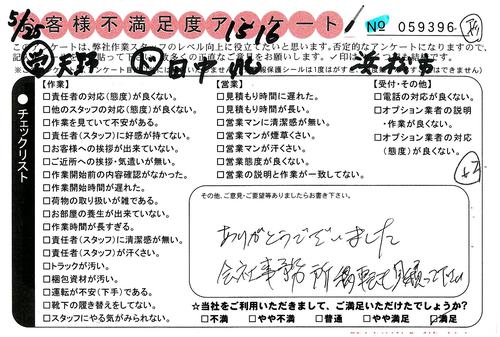 お客様不満足度アンケート
5/25
1516
No 059396
このアンケートは、弊社作業スタッフのレベル向上に役立てたいと思います。否定的なアンケートになりますので、
営 天野
浜松市
【作業】
□責任者の対応(態度)が良くない。
□他のスタッフの対応(態度)が良くない。
□作業を見ていて不安がある。
□責任者(スタッフ)に好感が持てない。
□お客様への挨拶が出来ていない。
□ご近所への挨拶・気遣いが無い。
□作業開始前の内容確認がなかった。
□作業開始時間が遅れた。
□荷物の取り扱いが雑である。
□お部屋の養生が出来ていない。
□作業時間が長すぎる。
□責任者(スタッフ)に清潔感が無い。
□責任者(スタッフ)が汗くさい。
□トラックが汚い。
□梱包資材が汚い。
□運転が不安(下手)である。
□靴下の履き替えをしてない。
□スタッフにやる気がみられない。
●チェックリスト
【営業】
□見積もり時間に遅れた。
□見積もり時間が長い。
□営業マンに清潔感が無い。
□営業マンが煙草くさい。
□営業マンが汗くさい。
□営業態度が良くない。
□営業の説明と作業が一致してない。
【受付・その他】
□電話の対応が良くない。
□オプション業者の説明
・作業が良くない。
□オプション業者の対応
(態度)が良くない。
その他、ご意見・ご要望等ありましたらお書き下さい。
ありがとうございました
会社事務所移転も頑張って下さい
☆当社をご利用いただきまして、ご満足いただけたでしょうか?
□不満 □やや不満 □普通 □やや満足 □満足